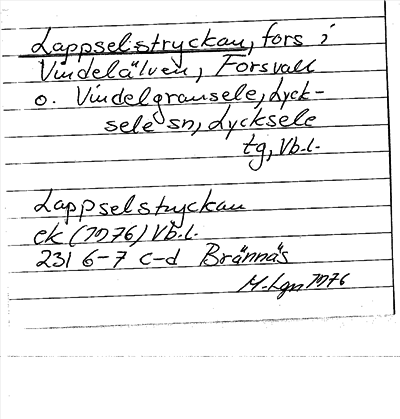 Lappselstryckan, fors i
Vindelälven, Forsvall
o. Vindelgransele, Lyck-
sele sn, Lycksele
tg, Vb.l.
Lappselstryckan
ek (1976) Vb.l.
231 6-7 c-d Brännäs
M-Lgn 1976